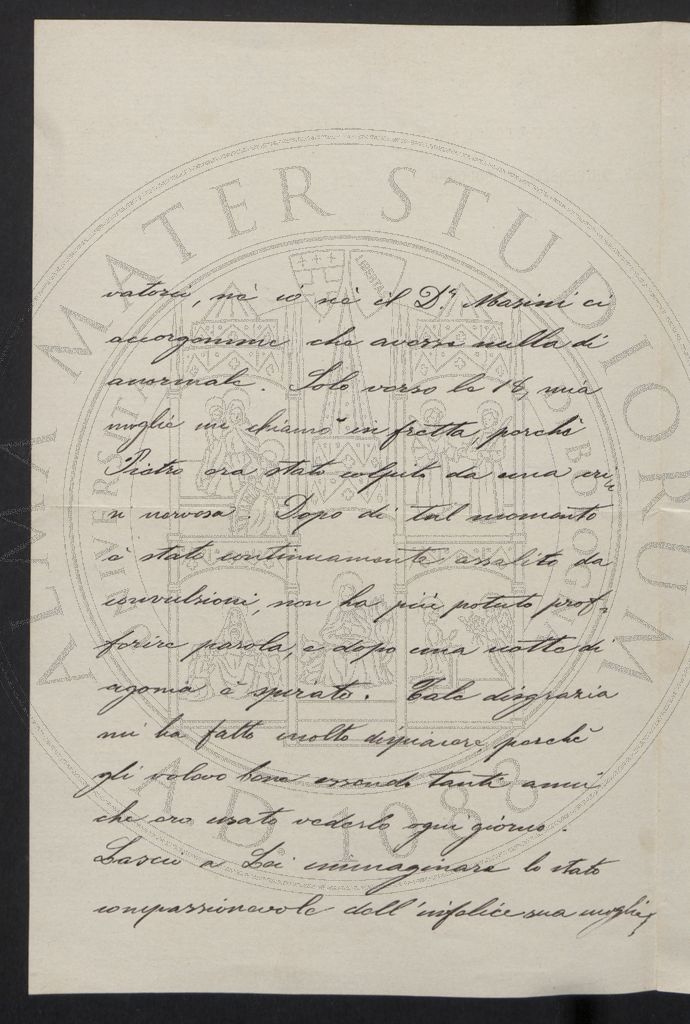 vatorii, nè io nè il Dr. Masini ci
accorgemmo che avesse nulla di
anormale. Solo verso le 18, mia
moglie mi chiamò in fretta, perchè
Pietro era stato colpito da una cri=
si nervosa. Dopo di tal momento
è stato continuamente assalito da
convulsioni, non ha più potuto prof=
ferire parola, e dopo una notte di
agonia è spirato. Tale disgrazia
mi ha fatto molto dispiacere, perchè
gli volevo bene essendo tanti anni
che ero usato vederlo ogni giorno.
Lascio a Lei immaginare lo stato
compassionevole dell'infelice sua moglie,
ALMA MATER STUDIORUM
A.D. 1088
LIBERTAS